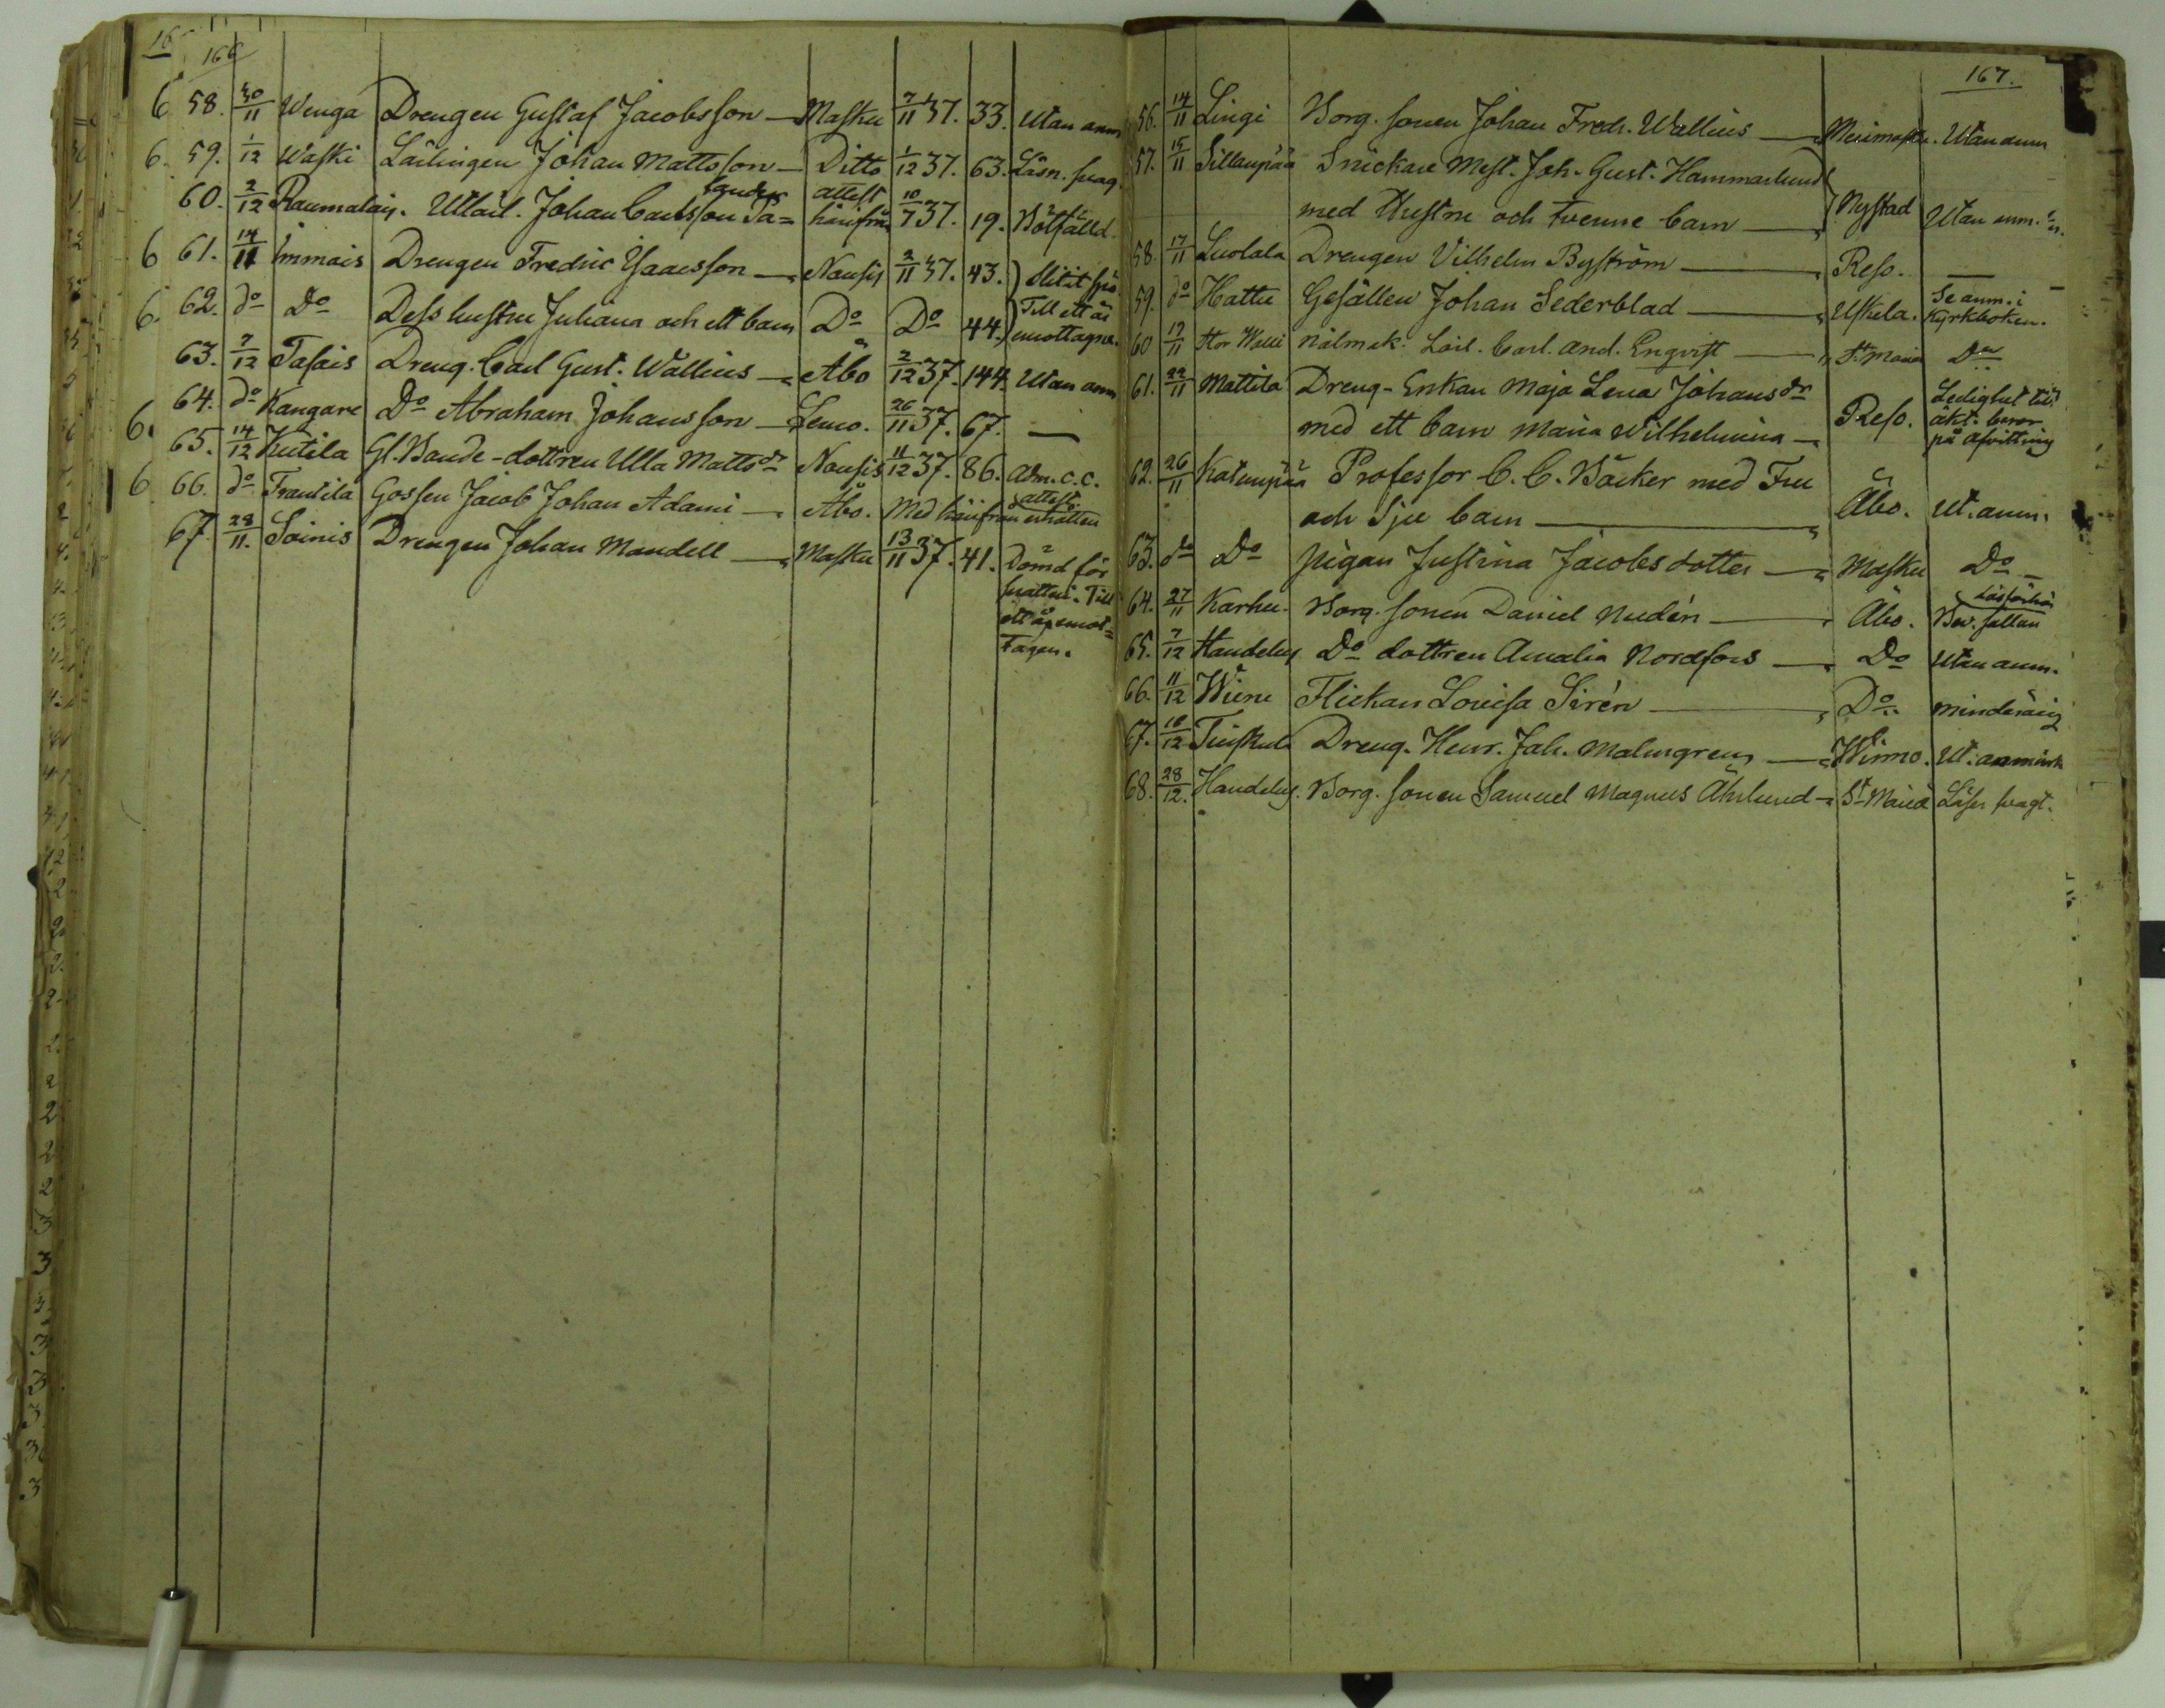 16
166
6 58. 30/11 Wenga Drengen Gustaf Jacobsson — Masku 7/11 37. 33. Utan anm
6. 59. 1/12 Waski Lärlingen Johan Mattsson — Ditto 1/12 37. 63. Läsn. svag.
60. 2/12 Raumalais. Utlärl. Johan Carlsson Sa= attest
lander härifrån 10/7 37. 19. Bötfälld.
6 61. 14/11 Immais Drengen Fredric Isaacsson — Nousis 2/11 37. 43.
6. 62. do Do Dess hustru Juliana och ett barn Do Do 44. Till ett år
emottagne.
63. 7/12 Tasais Dreng. Carl Gust. Wallius — Åbo 2/12 37. 144. Utan anm
64. do Kangare Do Abraham Johansson — Lemo. 26/11 37. 67. —
6. 65. 14/12 Kutila Gl. Bonde-dottren Ulla Mattsdr Nousis 11/12 37. 86. Adm. c.c.
6 66. do Frantila Gossen Jacob Johan Adami — Åbo. Med härifrån erhållen
attest
67. 28/11. Soinis Drengen Johan Mandell — Masku 13/11 37. 41. Dömd för
snatteri. Till
ett år emot=
tagen.
167.
56. 14/11 Lingi Borg. sonen Johan Fredr. Wallius — Merimasku. Utan anm
57. 15/11 Sillanpää Snickare Mest. Joh. Gust. Hammarlund
med Hustru och tvenne barn — Nystad Utan anm.
58. 17/11 Luolala Drengen Vilhelm Byström — Reso. —
59. do Hattu Gesällen Johan Sederblad — Uskela. Se anm. i
Kyrkboken.
60 19/11 Stor Walli nålmak. Lärl. Carl. And. Engvist — St Maria Do
61. 22/11 Mattila Dreng-Enkan Maja Lena Johansdr
med ett barn Maria Wilhelmina — Reso. Ledighet till
äkt. beror
på afvittring
62. 26/11 Katanpää Professor C. C. Bäcker med Fru
och Sju barn — Åbo. Ut. anm.
63. do Do pigan Justina Jacobsdotter — Masku Do —
64. 27/11 Karhu. Borg. sonen Daniel Nudén — Åbo. Bev. sällan
läsförhör
65. 7/12 Handelsg Do dottren Amalia Nordfors — Do Utan anm.
66. 11/12 Wiinu Flickan Lovisa Sirén — Do. minderårig
67. 18/12 Tuiskula Dreng. Henr. Joh. Malmgren — Wirmo. Ut. anmärk
68. 28/12. Handelsg. Borg. sonen Samuel Magnus Åhrlund — St Maria Läser svagt.